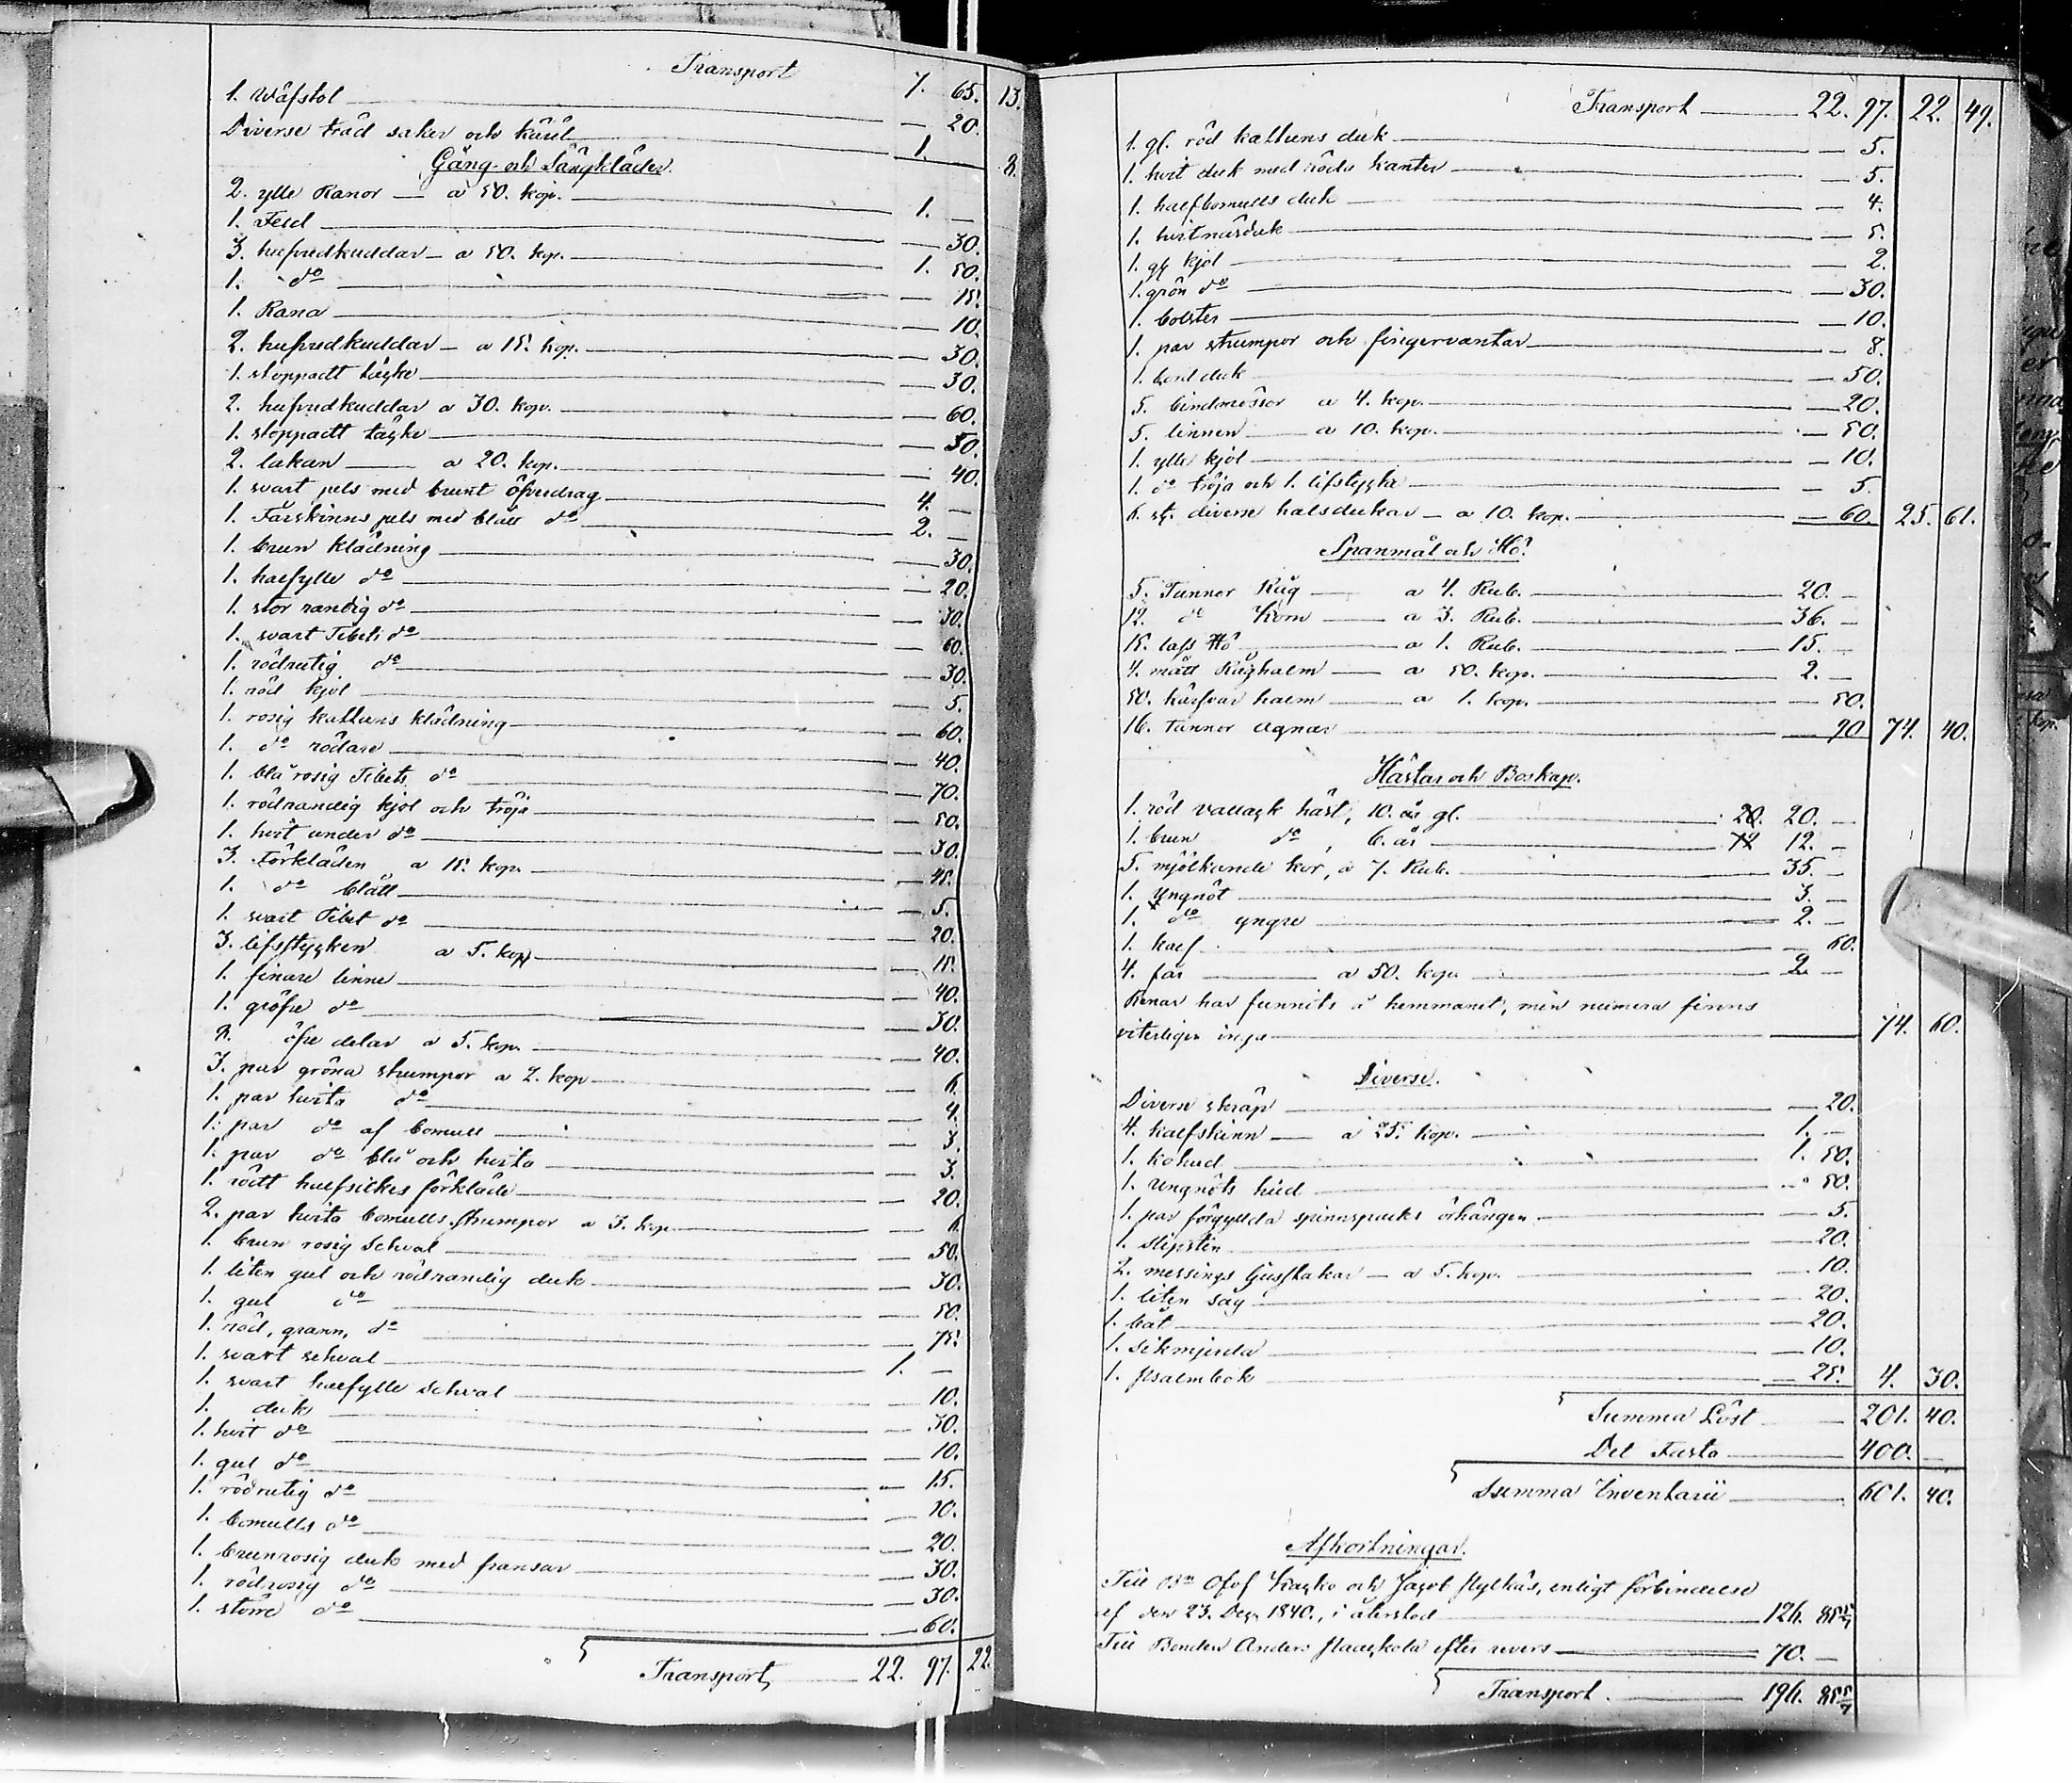 Transport 7. 65. 13.
1. Wäfstol — 20.
Diverse träd saker och käril 1. — 8.
Gång- och Sängkläder.
2. ylle Ranor — a 50. kop. 1. —
1. Feld — 30.
3. hufvudkuddar — a 50. kop. 1. 50.
1. do — 15.
1. Rana — 10.
2. hufvudkuddar — a 15. kop. — 30.
1. stoppadt täcke — 30.
2. hufvudkuddar a 30. kop. — 60.
1. stoppadt täcke — 50.
2. lakan — a 20. kop. — 40.
1. svart pels med brunt öfverdrag 4. —
1. Fårskinns pels med blått do 2. —
1. brun klädning — 30.
1. halfylle do — 20.
1. stor randig do — 30.
1. svart Tibets do — 60.
1. rödrutig do — 30.
1. röd kjol — 5.
1. rosig kattuns klädning — 60.
1. do rödare — 40.
1. blå rosig Tibets do — 70.
1. rödrandig kjol och tröja — 50.
1. hvit under do — 30.
3. Förkläden a 15. kop. — 45.
1. do blått — 5.
1. svart Tibet do — 20.
3. lifstycken a 5. kop. — 15.
1. finare linne — 40.
1. gröfre do — 30.
8. öfre delar a 5. kop. — 40.
3. par gröna strumpor a 2. kop — 6.
1. par hvita do — 4.
1. par do af bomull — 3.
1. par do blå och hvita — 3.
1. rött halfsilkes förkläde — 20.
2. par hvita bomulls strumpor a 3. kop — 6.
1. brun rosig Schval — 50.
1. liten gul och rödrandig duk — 30.
1. gul do — 50.
1. röd, grann, do — 75.
1. svart schval 1. —
1. svart halfylle Schval — 10.
1. duk — 30.
1. hvit do — 10.
1. gul do — 15.
1. rödrutig do — 10.
1. bomulls do — 20.
1. brunrosig duk med fransar — 30.
1. rödrosig do — 30.
1. större do — 60.
Transport 22. 97. 22.
Transport 22. 97. 22. 49.
1. gl. röd kattuns duk — 5.
1. hvit duk med röda kanter — 5.
1. halfbomulls duk — 4.
1. hvit näsduk — 5.
1. gl kjol — 2.
1. grön do — 30.
1. bolster — 10.
1. par strumpor och fingervantar — 8.
1. bord duk — 50.
5. bindmössor a 4. kop. — 20.
5. linnen — a 10. kop. — 50.
1. ylle kjol — 10.
1. do tröja och 1. lifstycke — 5.
6. st. diverse halsdukar — a 10. kop. — 60. 25. 61.
Spanmål och Hö.
5. Tunnor Råg — a 4. Rub. 20. —
12. do Korn — a 3. Rub. 36. —
15. lass Hö a 1. Rub. 15. —
4. mått Råghalm — a 50. kop. 2. —
50. kärfvar halm — a 1. kop. — 50.
16. tunnor agnar — 90 74. 40.
Hästar och Boskap.
1. röd vallack häst, 10. år gl. 20. 20. —
1. brun do, 6. år 12 12. —
5. mjölkande kor, a 7. Rub. 35. —
1. Ungnöt 3. —
1. do yngre 2. —
1. kalf — 60.
4. får a 50. kop. 2. —
Renar har funnits å hemmanet, men numera finns
viterligen inga 74. 60.
Diverse.
Diverse skräp — 20.
4. kalfskinn — a 25. kop. 1. —
1. kohud 1. 50.
1. ungnöts hud — 50.
1. par förgyllda spinnspacks örhängen — 5.
1. slipsten — 20.
2. messings ljusstakar — a 5. kop. — 10.
1. liten såg — 20.
1. båt — 20.
1. sikmjerda — 10.
1. psalmbok — 25. 4. 30.
Summa Löst 201. 40.
Det Fasta 400. —
Summa Inventarii 601. 40.
Afkortningar.
Till Olof och Jacob enligt förbindelse
af den 23. Dec. 1840., i återstod 126. 85 5/7
Till Bonden Anders efter revers 70. —
Transport. 196. 85 5/7